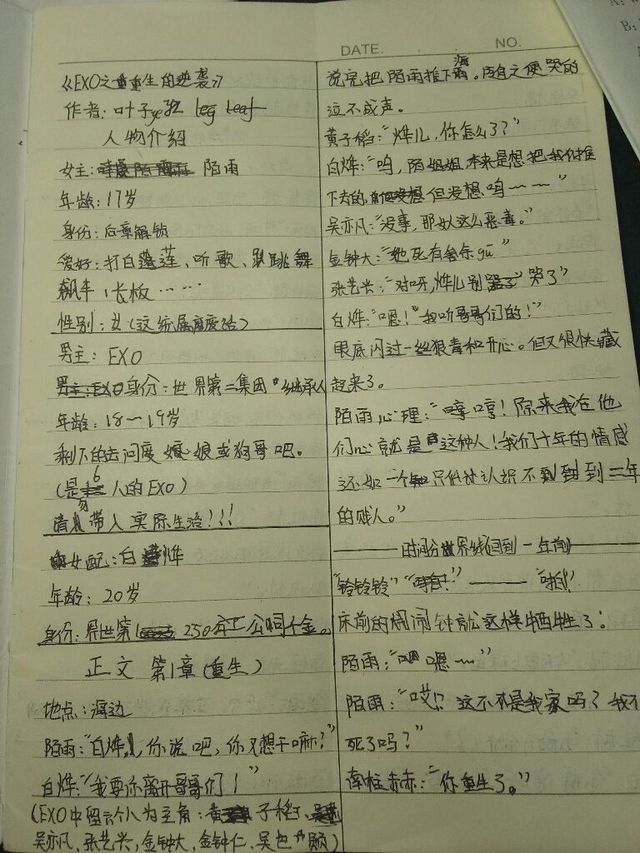 DATE. . . NO.
《EXO之重重生的逆袭》
作者:叶子ye zi Leg Leaf
人物介绍
女主: 陌雨
年龄:17岁
身份:后章解锁
爱好:打白莲莲、听歌、跳舞
飙车、长板……
性别:女(这纯属废话)
男主:EXO
身份:世界第二集团继承人
年龄:18~19岁
剩下的去问度娘娘或狗哥吧。
(是6人的EXO)
请勿带人实际生活!!!
女配:白烨
年龄:20岁
身份:界世第 250 公司千金。
正文 第1章(重生)
地点:海边
陌雨:“白烨,你说吧,你又想干嘛?”
白烨:“我要你离开哥哥们!
(EXO中留六个人为主角: 子稻、
吴亦凡、张艺兴、金钟大、金钟仁、吴世勋)
说完把陌雨推下海。 之便哭的
泣不成声。
黄子稻:“烨儿,你怎么了?”
白烨:“呜,陌姐姐本来是想把我们推
下去的, 但没想呜~~~”
吴亦凡:“没事,那奴这么恶毒。”
金钟大:“她死有余gu”
张艺兴:“对呀,烨儿别哭了”
白烨:“嗯!我听哥哥们的!”
眼底闪过一丝狠毒和开心。但又很快藏
起来了。
陌雨心理:“哼哼!原来我在他
们心就是 这种人!我们十年的情感
还如一个 只 认识不到 到二年
的贱人。”
时间分世界线(回到一年前)
“铃铃铃” “ !” —— “啪!
床前的闹钟就这样牺牲了!
陌雨:“ 嗯~~”
陌雨:“哎!?这不 是我家吗?我不
死了吗?”
南柱赫赫:“你重生了。”